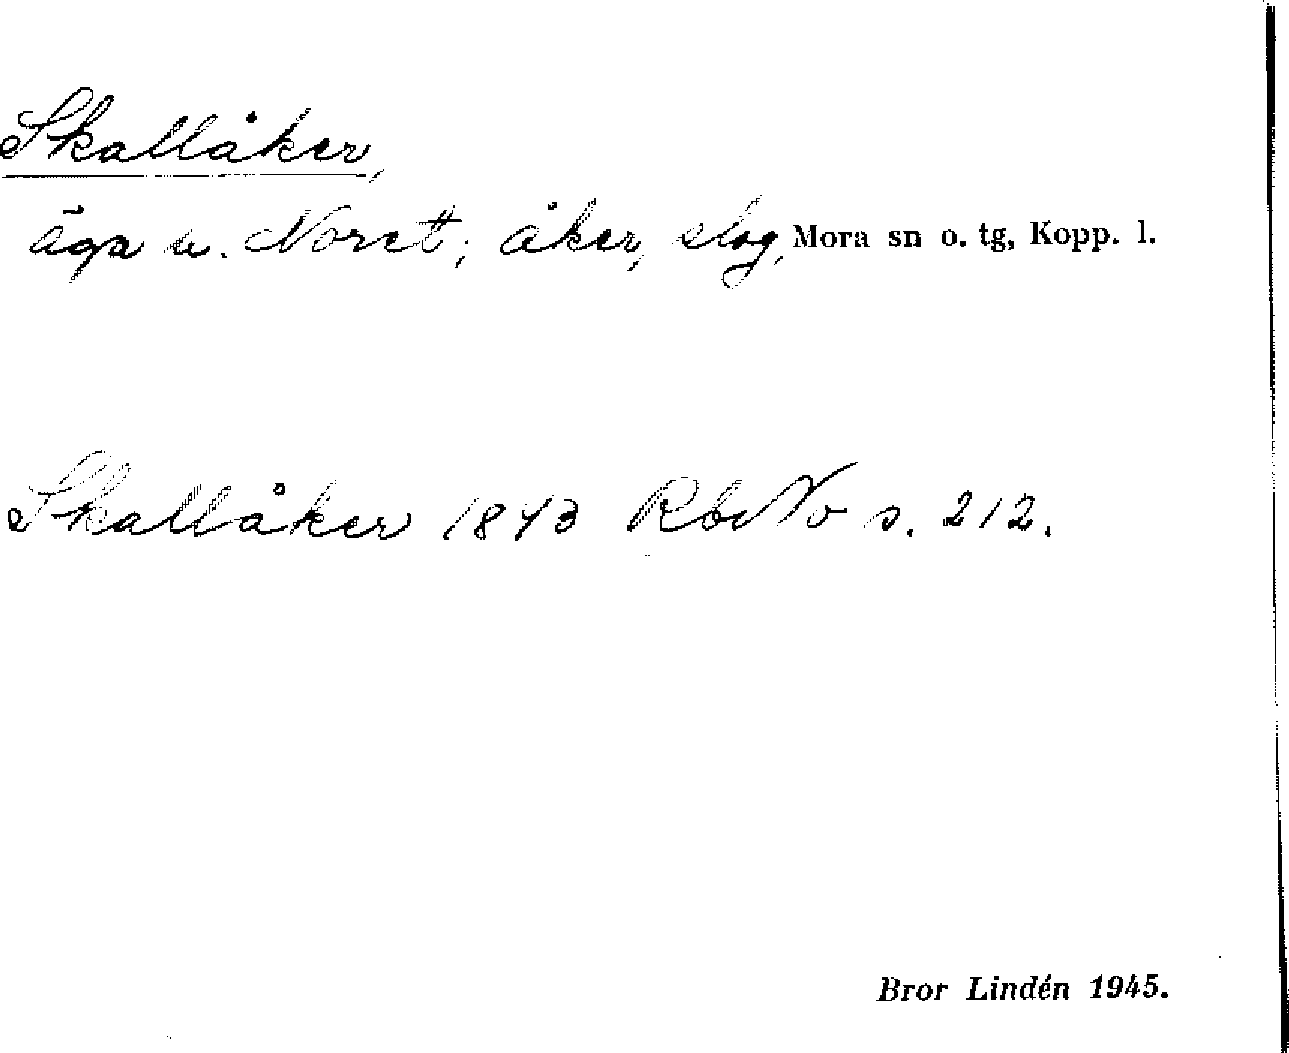 Skallåker,
äga u. Noret; åker, slog, Mora sn o. tg, Kopp. l.
Skallåker 1843 RbNo s. 212.
Bror Lindén 1945.